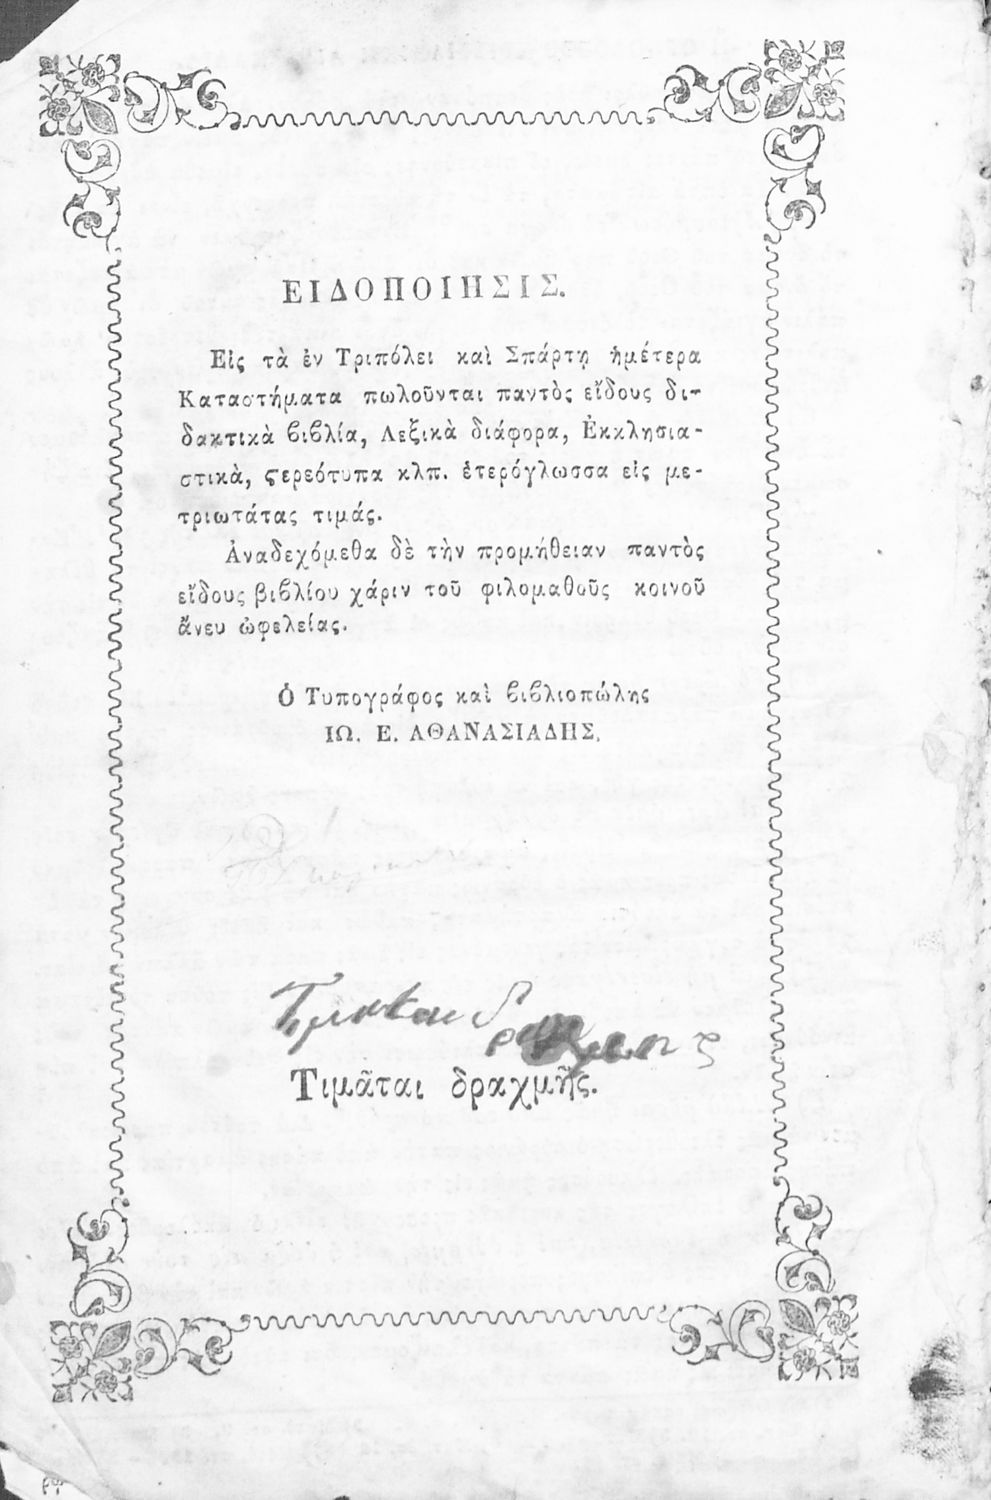 ΕΙΔΟΠΟΙΗΣΙΣ.
Εἰς τὰ ἐν Τριπόλει καὶ Σπάρτῃ ἡμέτερα
Καταστήματα πωλοῦνται παντὸς εἴδους δι-
δακτικὰ βιβλία, Λεξικὰ διάφορα, Ἐκκλησια-
στικὰ, ϛερεότυπα κλπ. ἑτερόγλωσσα εἰς με-
τριωτάτας τιμάς.
Ἀναδεχόμεθα δὲ τὴν προμήθειαν παντὸς
εἴδους βιβλίου χάριν τοῦ φιλομαθοῦς κοινοῦ
ἄνευ ὠφελείας.
Ὁ Τυπογράφος καὶ βιβλιοπώλης
ΙΩ. Ε. ΑΘΑΝΑΣΙΑΔΗΣ.
Τιμᾶται δραχμῆς.